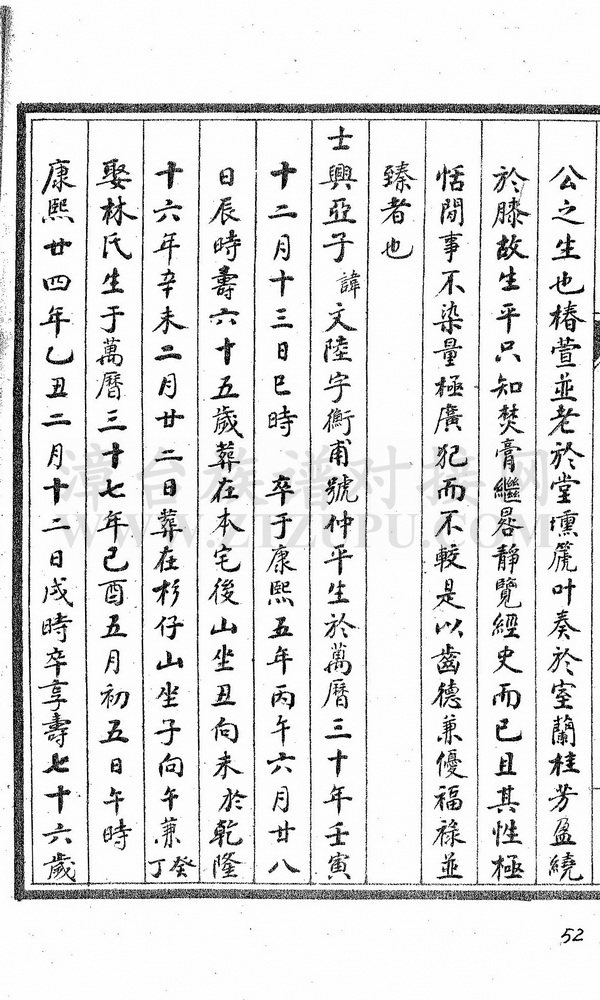 公之生也椿萱並老於堂壎篪叶奏於室蘭桂芳盈繞
於膝故生平只知焚膏繼晷靜覽經史而已且其性極
恬閒事不染量極廣犯而不較是以齒德兼優福祿並
臻者也
士興亞子諱文陸字衡甫號仲平生於萬曆三十年壬寅
十二月十三日巳時 卒于康熙五年丙午六月廿八
日辰時壽六十五歲葬在本宅後山坐丑向未於乾隆
十六年辛未二月廿二日葬在杉仔山坐子向午兼癸丁
娶林氏生于萬曆三十七年己酉五月初五日午時
康熙廿四年乙丑二月十二日戌時卒享壽七十六歲
52
漳台族谱对接网
WWW.ZTZUPU.COM